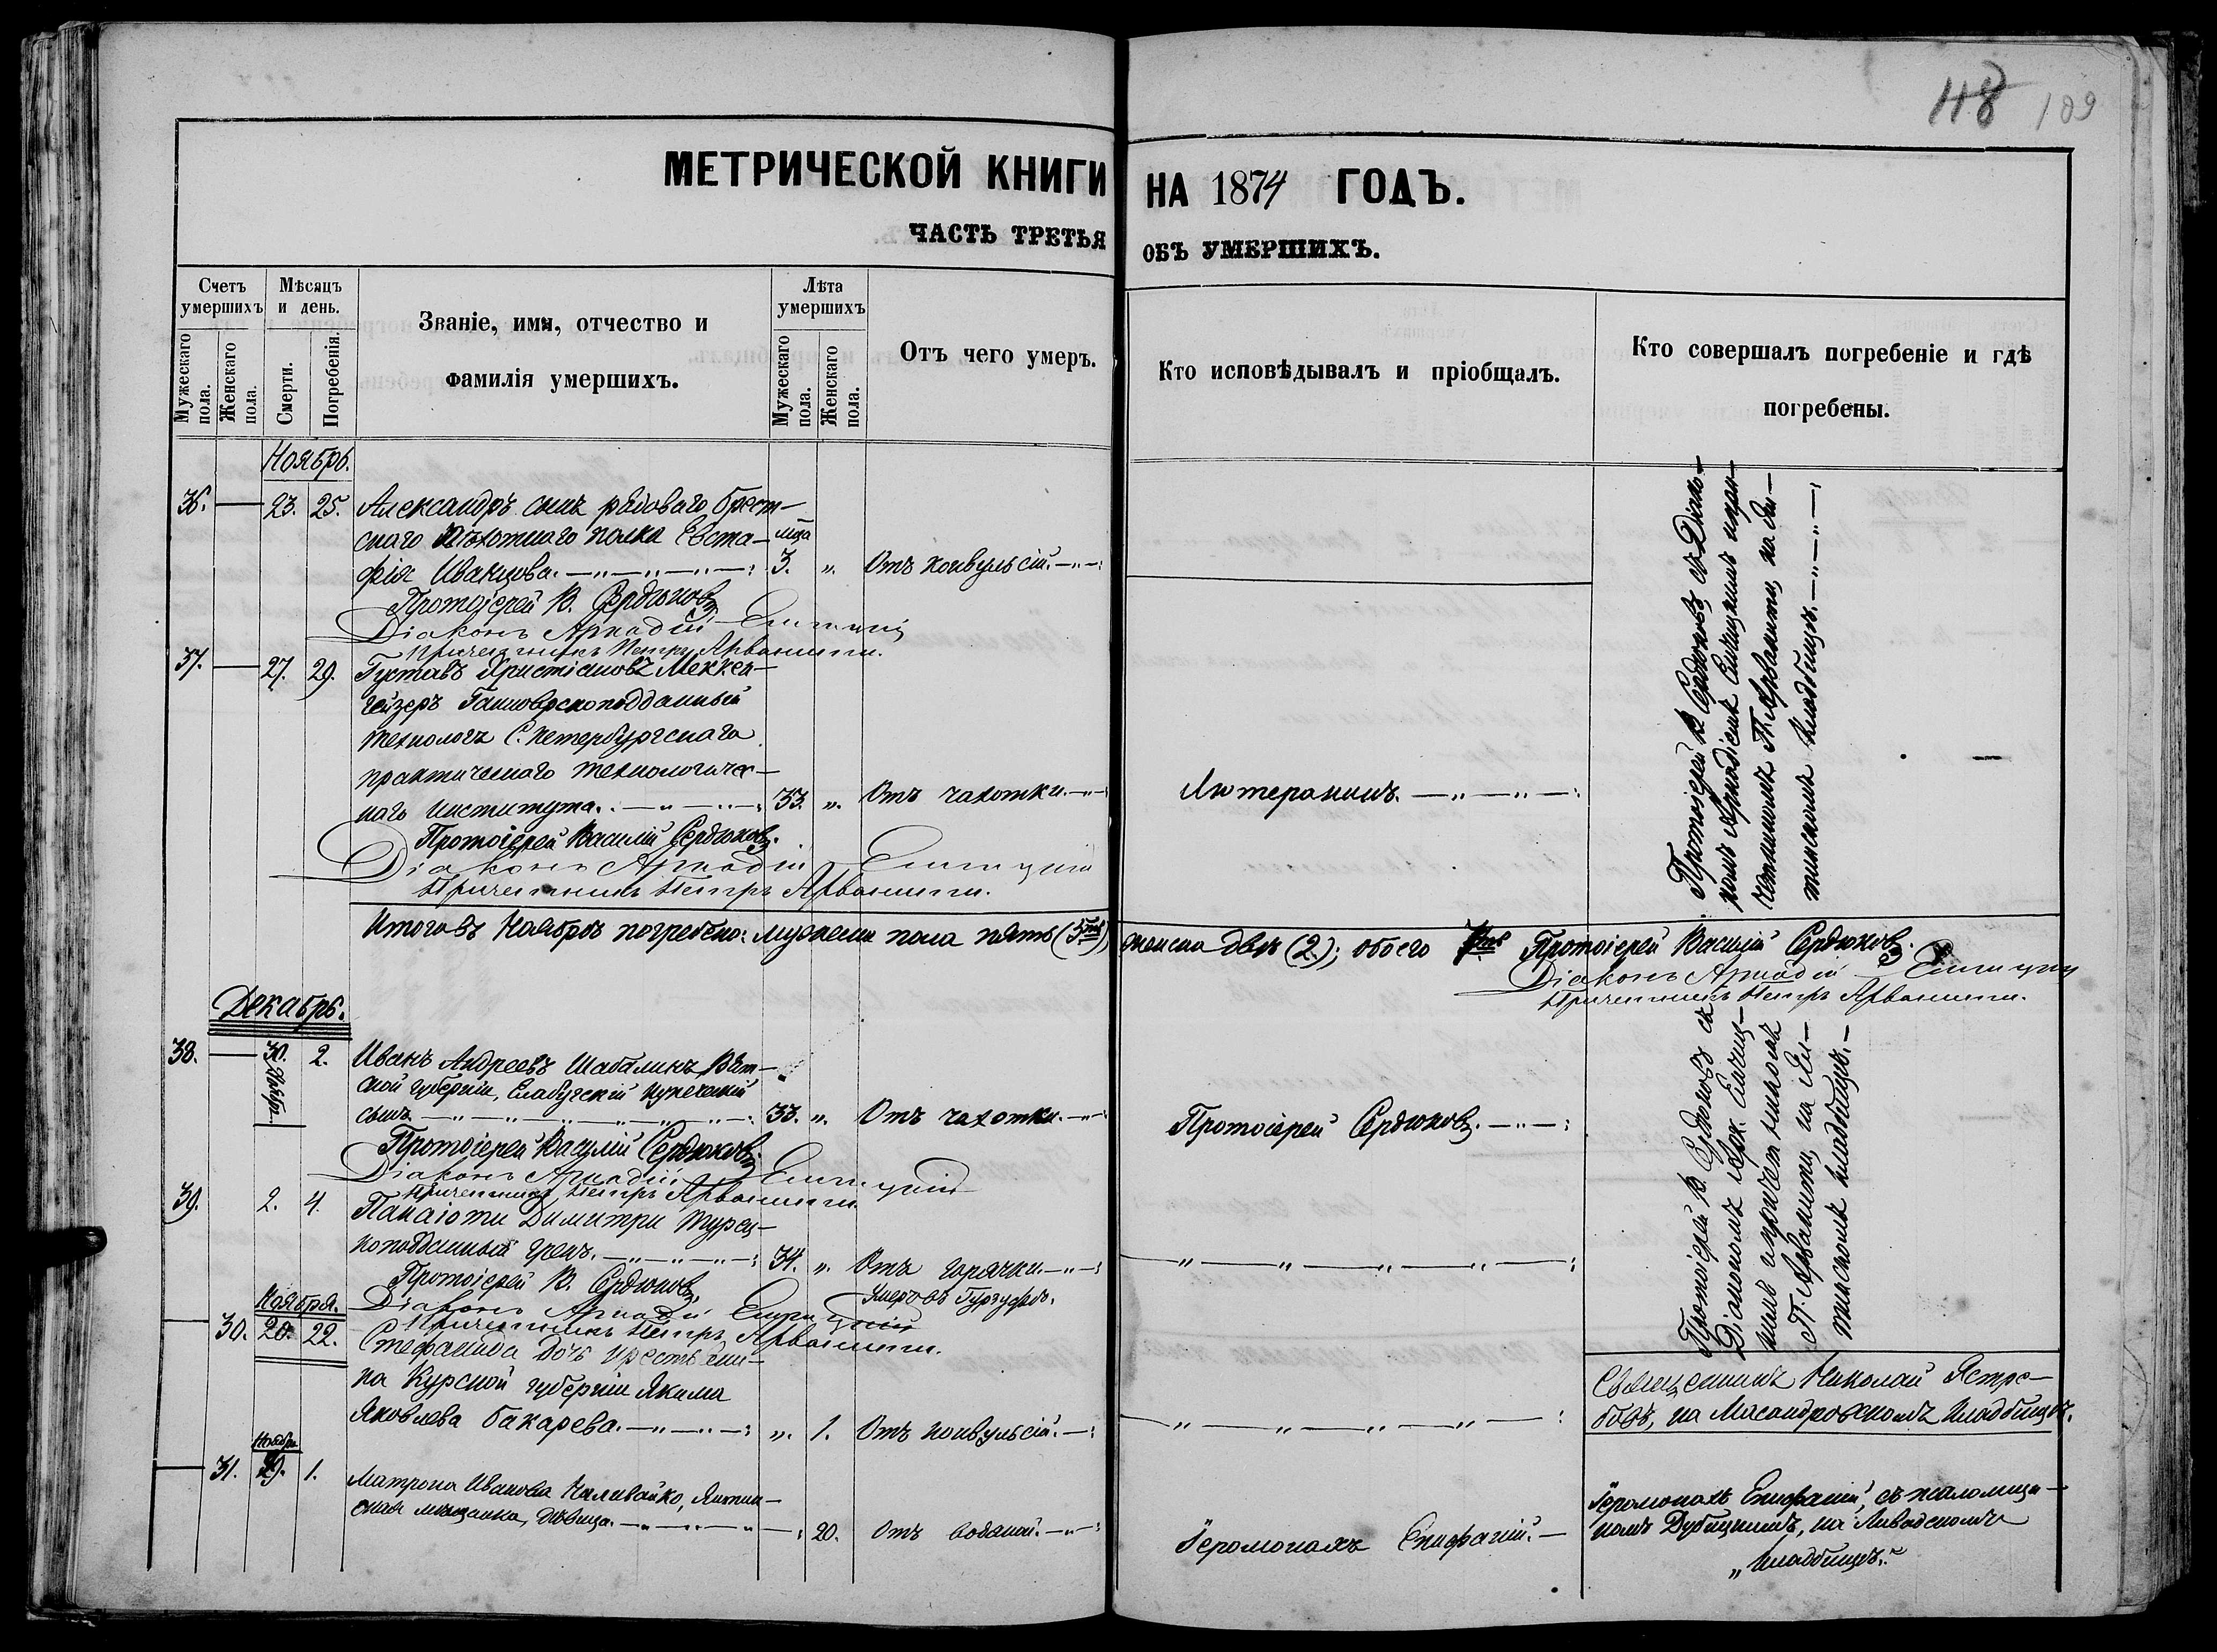 118 109
МЕТРИЧЕСКОЙ КНИГИ НА 1874 ГОДЪ.
ЧАСТЬ ТРЕТЬЯ ОБЪ УМЕРШИХЪ.
Счетъ умершихъ
Мужескаго пола.
Женскаго пола.
Мѣсяцъ и день.
Смерти.
Погребенія.
Званіе, имя, отчество и
фамилія умершихъ.
Лѣта умершихъ
Мужескаго пола.
Женскаго пола.
Отъ чего умеръ.
Кто исповѣдывалъ и пріобщалъ.
Кто совершалъ погребеніе и гдѣ
погребены.
Ноябрь.
36. — 23. 25. Александръ сынъ рядоваго Брест-
скаго пѣхотнаго полка Евста- мца
фія Иванцова. 3. „ Отъ конвульсій.
Протоіерей В. Сердюковъ
Діаконъ Аркадій
Причетникъ Петръ Арванити.
37. — 27. 29. Густавъ Христіановъ Меккен-
гейзеръ Ганноверскоподданный
технологъ С. Петербургскаго
практическаго технологичес-
каго института. 33. „ Отъ чахотки. Лютеранинъ.
Протоіерей Василій Сердюковъ.
Діаконъ Аркадій
Причетникъ Петръ Арванити.
Протоіерей В. Сердюковъ, съ Діако-
номъ Аркадіемъ и при-
четникомъ П. Арванити, на Ял-
тинскомъ кладбищѣ.
Итого въ Ноябрѣ погребено: мужеска пола пять (5ть) женска двѣ (2); обоего 7мь Протоіерей Василій Сердюковъ.
Діаконъ Аркадій
Причетникъ Петръ Арванити.
Декабрь.
38. — 30. Ноябр. 2. Иванъ Андреевъ Шабалинъ Вят-
ской губерніи, Елабугскій купеческій
сынъ 33. „ Отъ чахотки. Протоіерей Сердюковъ.
Протоіерей Василій Сердюковъ.
Діаконъ Аркадій
Причетникъ Петръ Арванити.
39. 2. 4. Панаіоти Димитри турец-
коподданный грекъ. 34. „ Отъ горячки.
Протоіерей В. Сердюковъ. Умеръ въ Гурзуфѣ.
Діаконъ Аркадій
Причетникъ Петръ Арванити.
Протоіерей В. Сердюковъ съ
Діакономъ
и причетникомъ
П. Арванити, на Ял-
тинскомъ кладбищѣ.
Ноября.
— 30. 20. 22. Стефанида дочь крестьяни-
на Курской губерніи Якима
Яковлева Бакарева. „ 1. Отъ конвульсій.
Священникъ Николай Ястре-
бовъ, на Масандровскомъ кладбищѣ.
Ноябр.
— 31. 29. 1. Матрона Иванова Наливайко, Ялтин-
ская мѣщанка, дѣвица. 20. Отъ водяной. Іеромонахъ Епифаній.
Іеромонахъ Епифаній, съ псаломщи-
комъ Дубицкимъ, на Ливадскомъ
кладбищѣ.